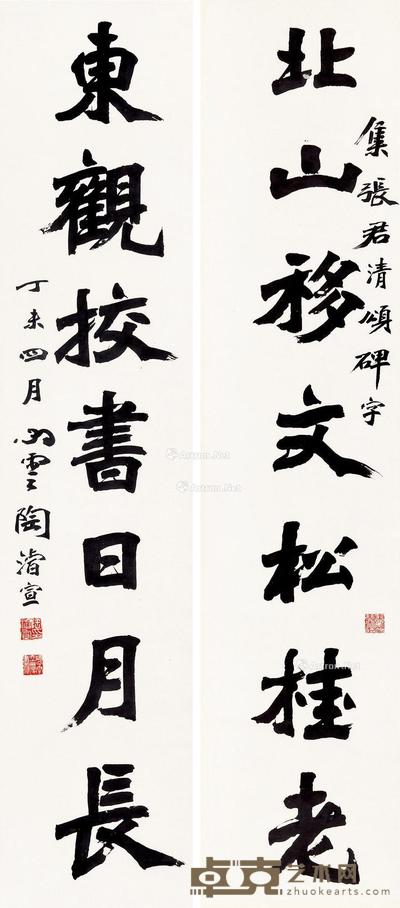 集張君清頌碑字
北山移文松桂老
東觀挍書日月長
丁未四月心雲陶濬宣
Artron.Net
卓克艺术网
zhuokearts.com